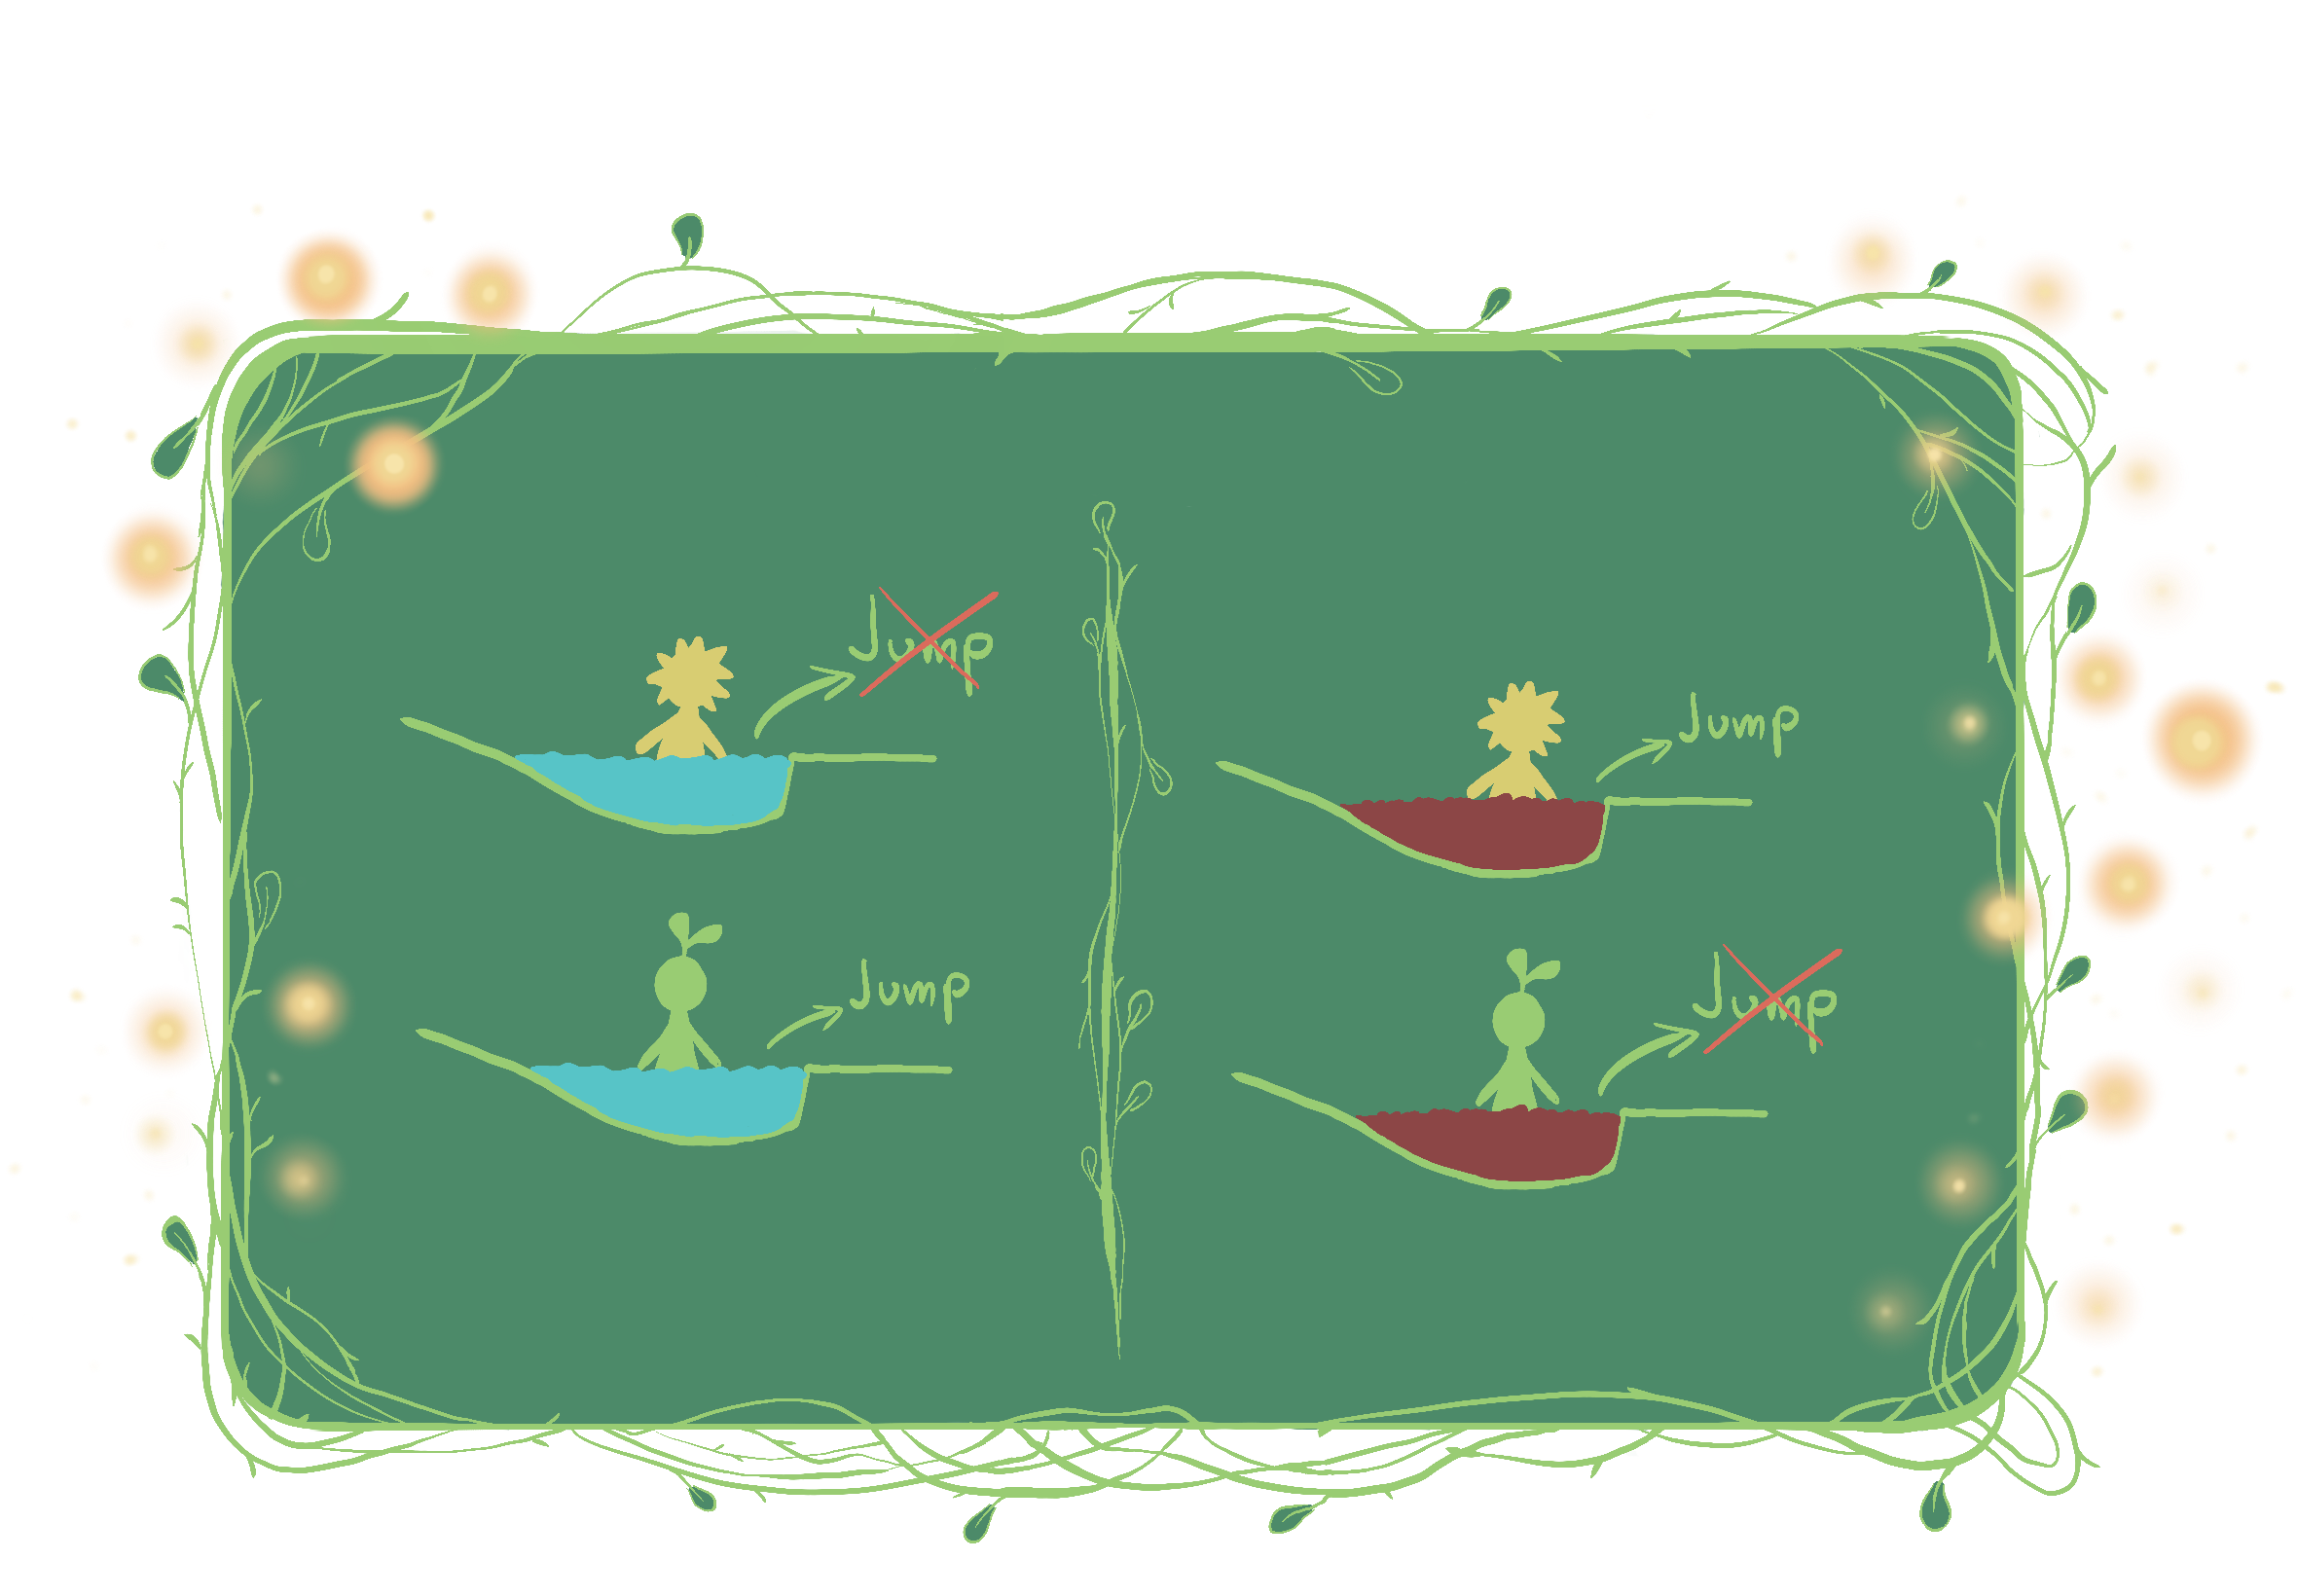 Jump
Jump
Jump
Jump